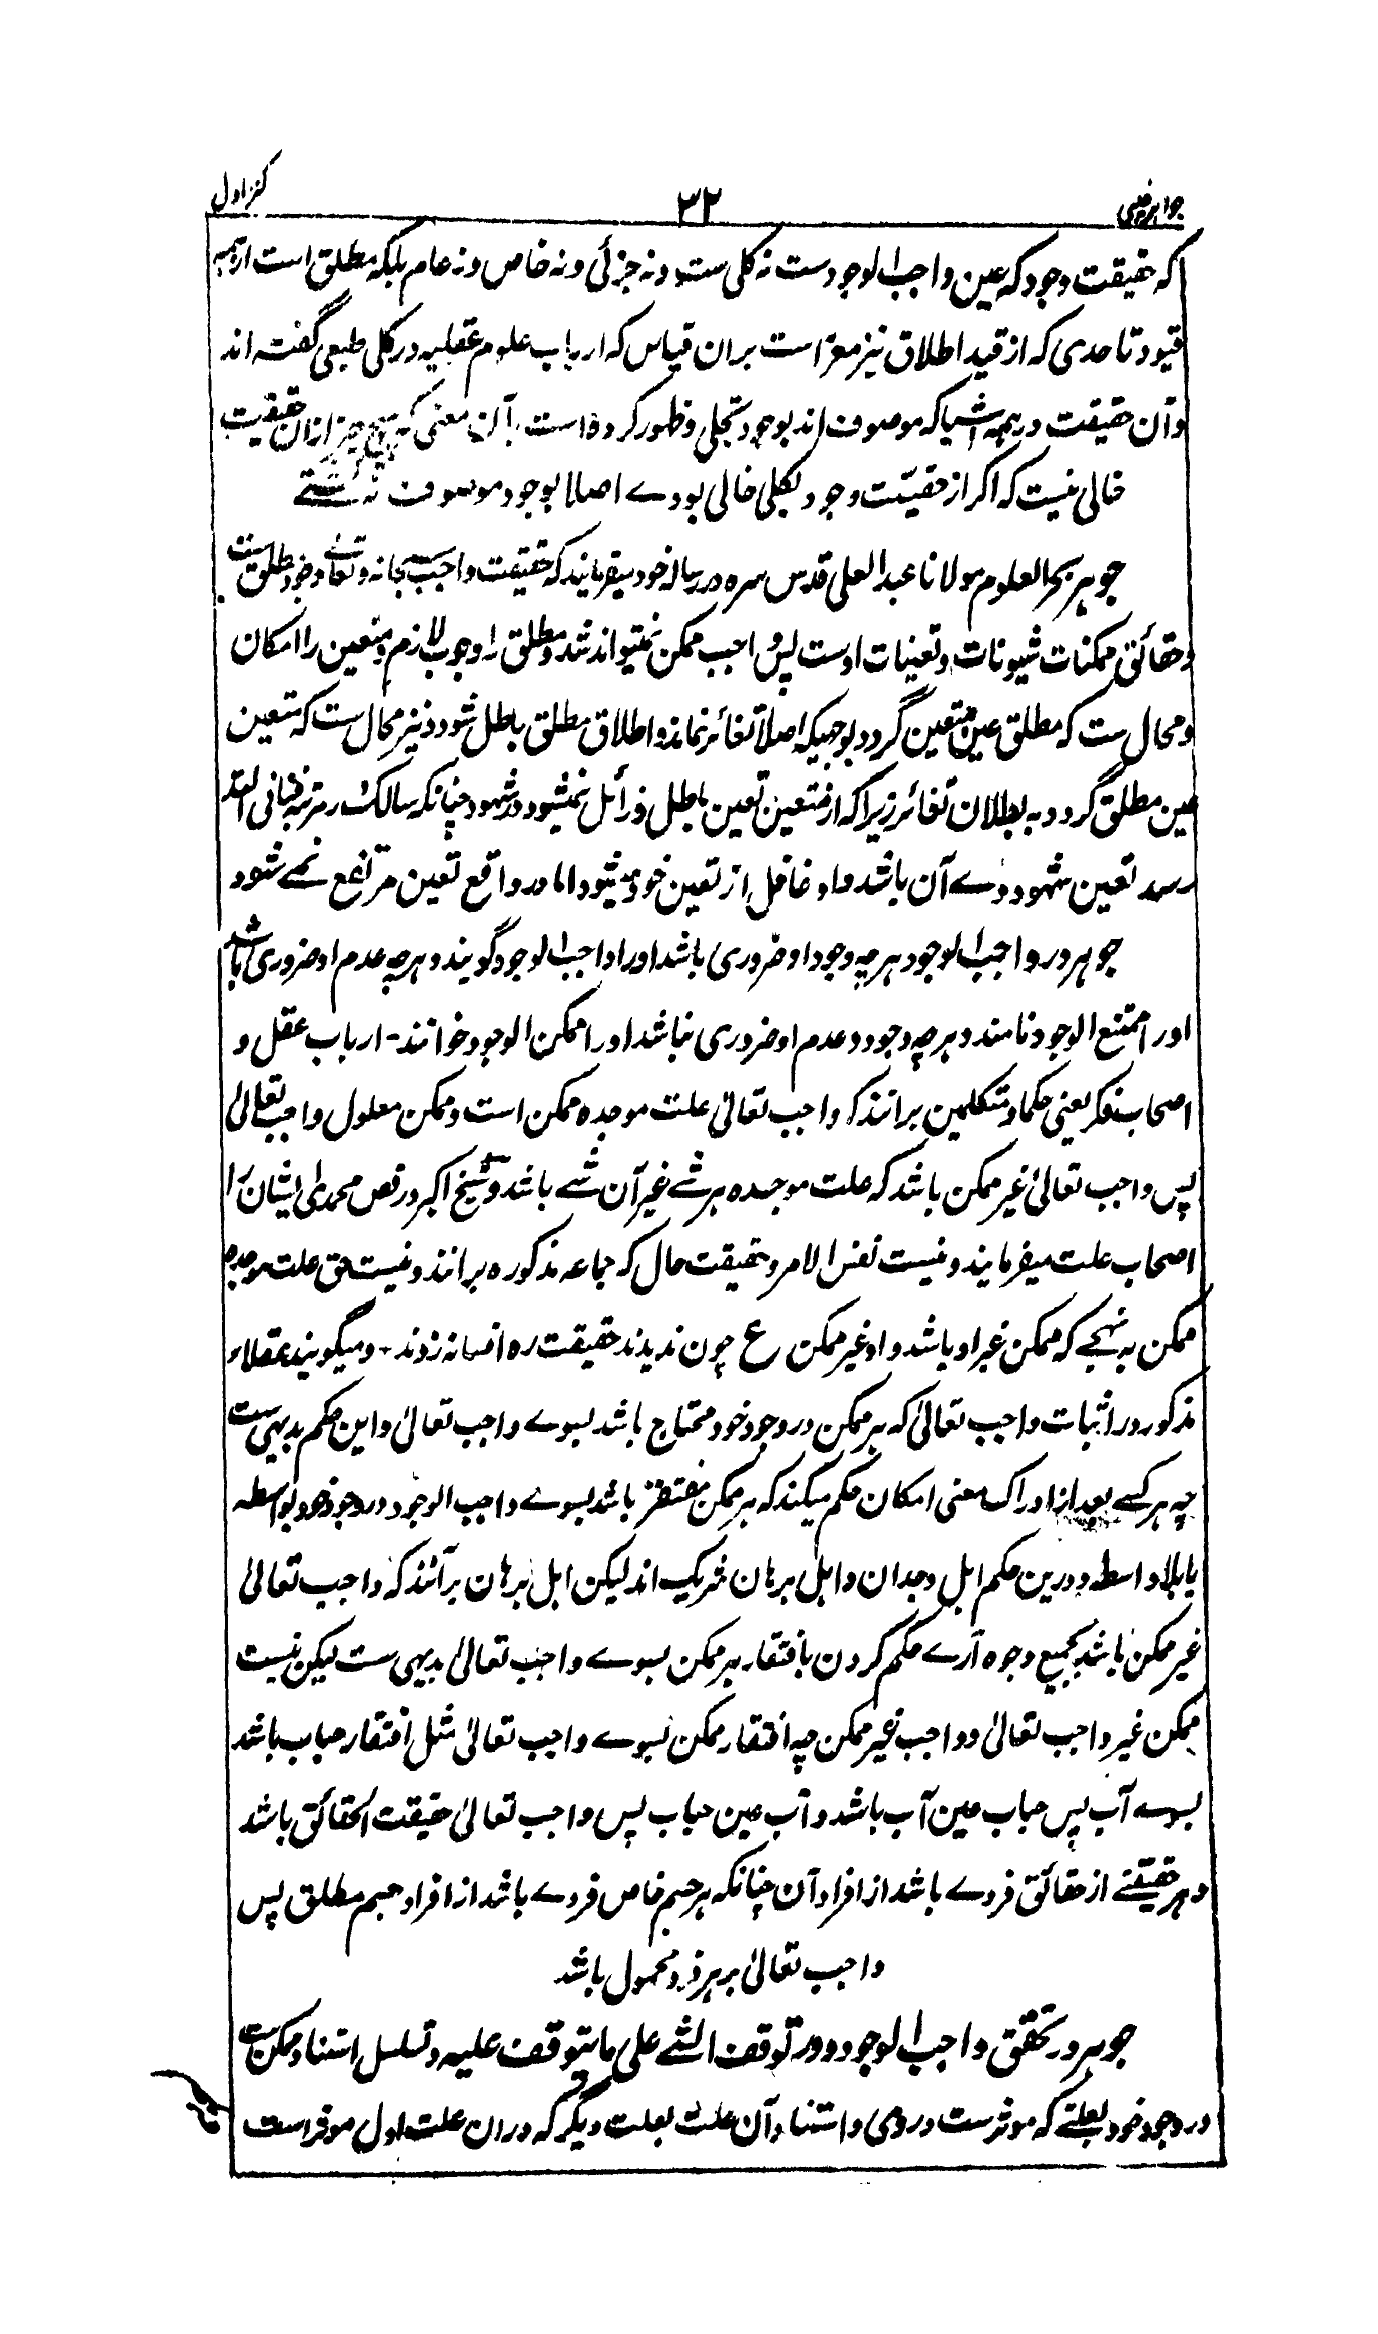 جواہر غیبی
۳۲
کنز اول
که حقیقت وجود که عین واجب الوجودست نه کلی ست ونه جزئی ونه خاص ونه عام بلکه مطلق است از همه
قیود تا حدی که از قید اطلاق نیز معرّاست بران قیاس که ارباب علوم عقلیه در کلی طبعی گفته اند
وآن حقیقت در همه اشیا که موصوف اند بوجود تجلی و ظهور کرده است بآن معنی که هیچ چیز ازان حقیقت
خالی نیست که اگر از حقیقت وجود بکلی خالی بودے اصلا بوجود موصوف نه گشتے
جوہر بحر العلوم مولانا عبد العلی قدس سره در رساله خود میفرمایند که حقیقت واجب سبحانه وتعالیٰ وجود مطلق ست
وحقائق ممکنات شیونات وتعینات اوست پس واجب ممکن نمیتواند شد ومطلق را وجوب لازم ومتعین را امکان
ومحال ست که مطلق عین متعین گردد بوجهیکه اصلا تغائر نماند واطلاق مطلق باطل شود ونیز محال ست که متعین
عین مطلق گردد به بطلان تغائر زیرا که از متعین تعین باطل وزائل نمیشود در شهود چنانکه سالک در مرتبه فنا فی الله
رسد تعین شهود دے آن باشد واو غافل از تعین خود میشود اما در واقع تعین مرتفع نمے شود
جوہر در واجب الوجود هرچه وجود او ضروری باشد او را واجب الوجود گویند وهرچه عدم او ضروری باشد
او را ممتنع الوجود نامند وهرچه وجود وعدم او ضروری نباشد او را ممکن الوجود خوانند - ارباب عقل و
اصحاب فکر یعنی حکما ومتکلمین برانند که واجب تعالیٰ علت موجده ممکن است وممکن معلول واجب تعالیٰ
پس واجب تعالیٰ غیر ممکن باشد که علت موجده هر شے غیر آن شے باشد وشیخ اکبر در فص محمدی ایشان را
اصحاب علت میفرمایند ونیست نفس الامر وحقیقت حال که جماعه مذکوره برانند ونیست حق علت موجده
ممکن به نهجے که ممکن غیر او باشد واو غیر ممکن ع چون ندیدند حقیقت ره افسانه زدند - ومیگویند عقلاء
مذکور در اثبات واجب تعالیٰ که هر ممکن در وجود خود محتاج باشد بسوے واجب تعالیٰ واین حکم بدیهی ست
چه هر کسے بعد از ادراک معنی امکان حکم میکند که هر ممکن مفتقر باشد بسوے واجب الوجود در وجود خود بواسطه
یا بلا واسطه ودرین حکم اهل وجدان واهل برهان شریک اند لیکن اهل برهان برآنند که واجب تعالیٰ
غیر ممکن باشد بجمیع وجوه آرے حکم کردن بافتقار هر ممکن بسوے واجب تعالیٰ بدیهی ست لیکن نیست
ممکن غیر واجب تعالیٰ وواجب غیر ممکن چه افتقار ممکن بسوے واجب تعالیٰ مثل افتقار حباب باشد
بسوے آب پس حباب عین آب باشد وآب عین حباب پس واجب تعالیٰ حقیقت الحقائق باشد
وهر حقیقتے از حقائق فردے باشد از افراد آن چنانکه هر جسم خاص فردے باشد از افراد جسم مطلق پس
واجب تعالیٰ بر هر فرد محمول باشد
جوہر در تحقق واجب الوجود ودور توقف الشے علی ما یتوقف علیه وتسلسل استناد ممکن ست
در وجود خود بعلتے که موثرست در وی واستناد آن علت بعلت دیگر که دران علت اول موثر است